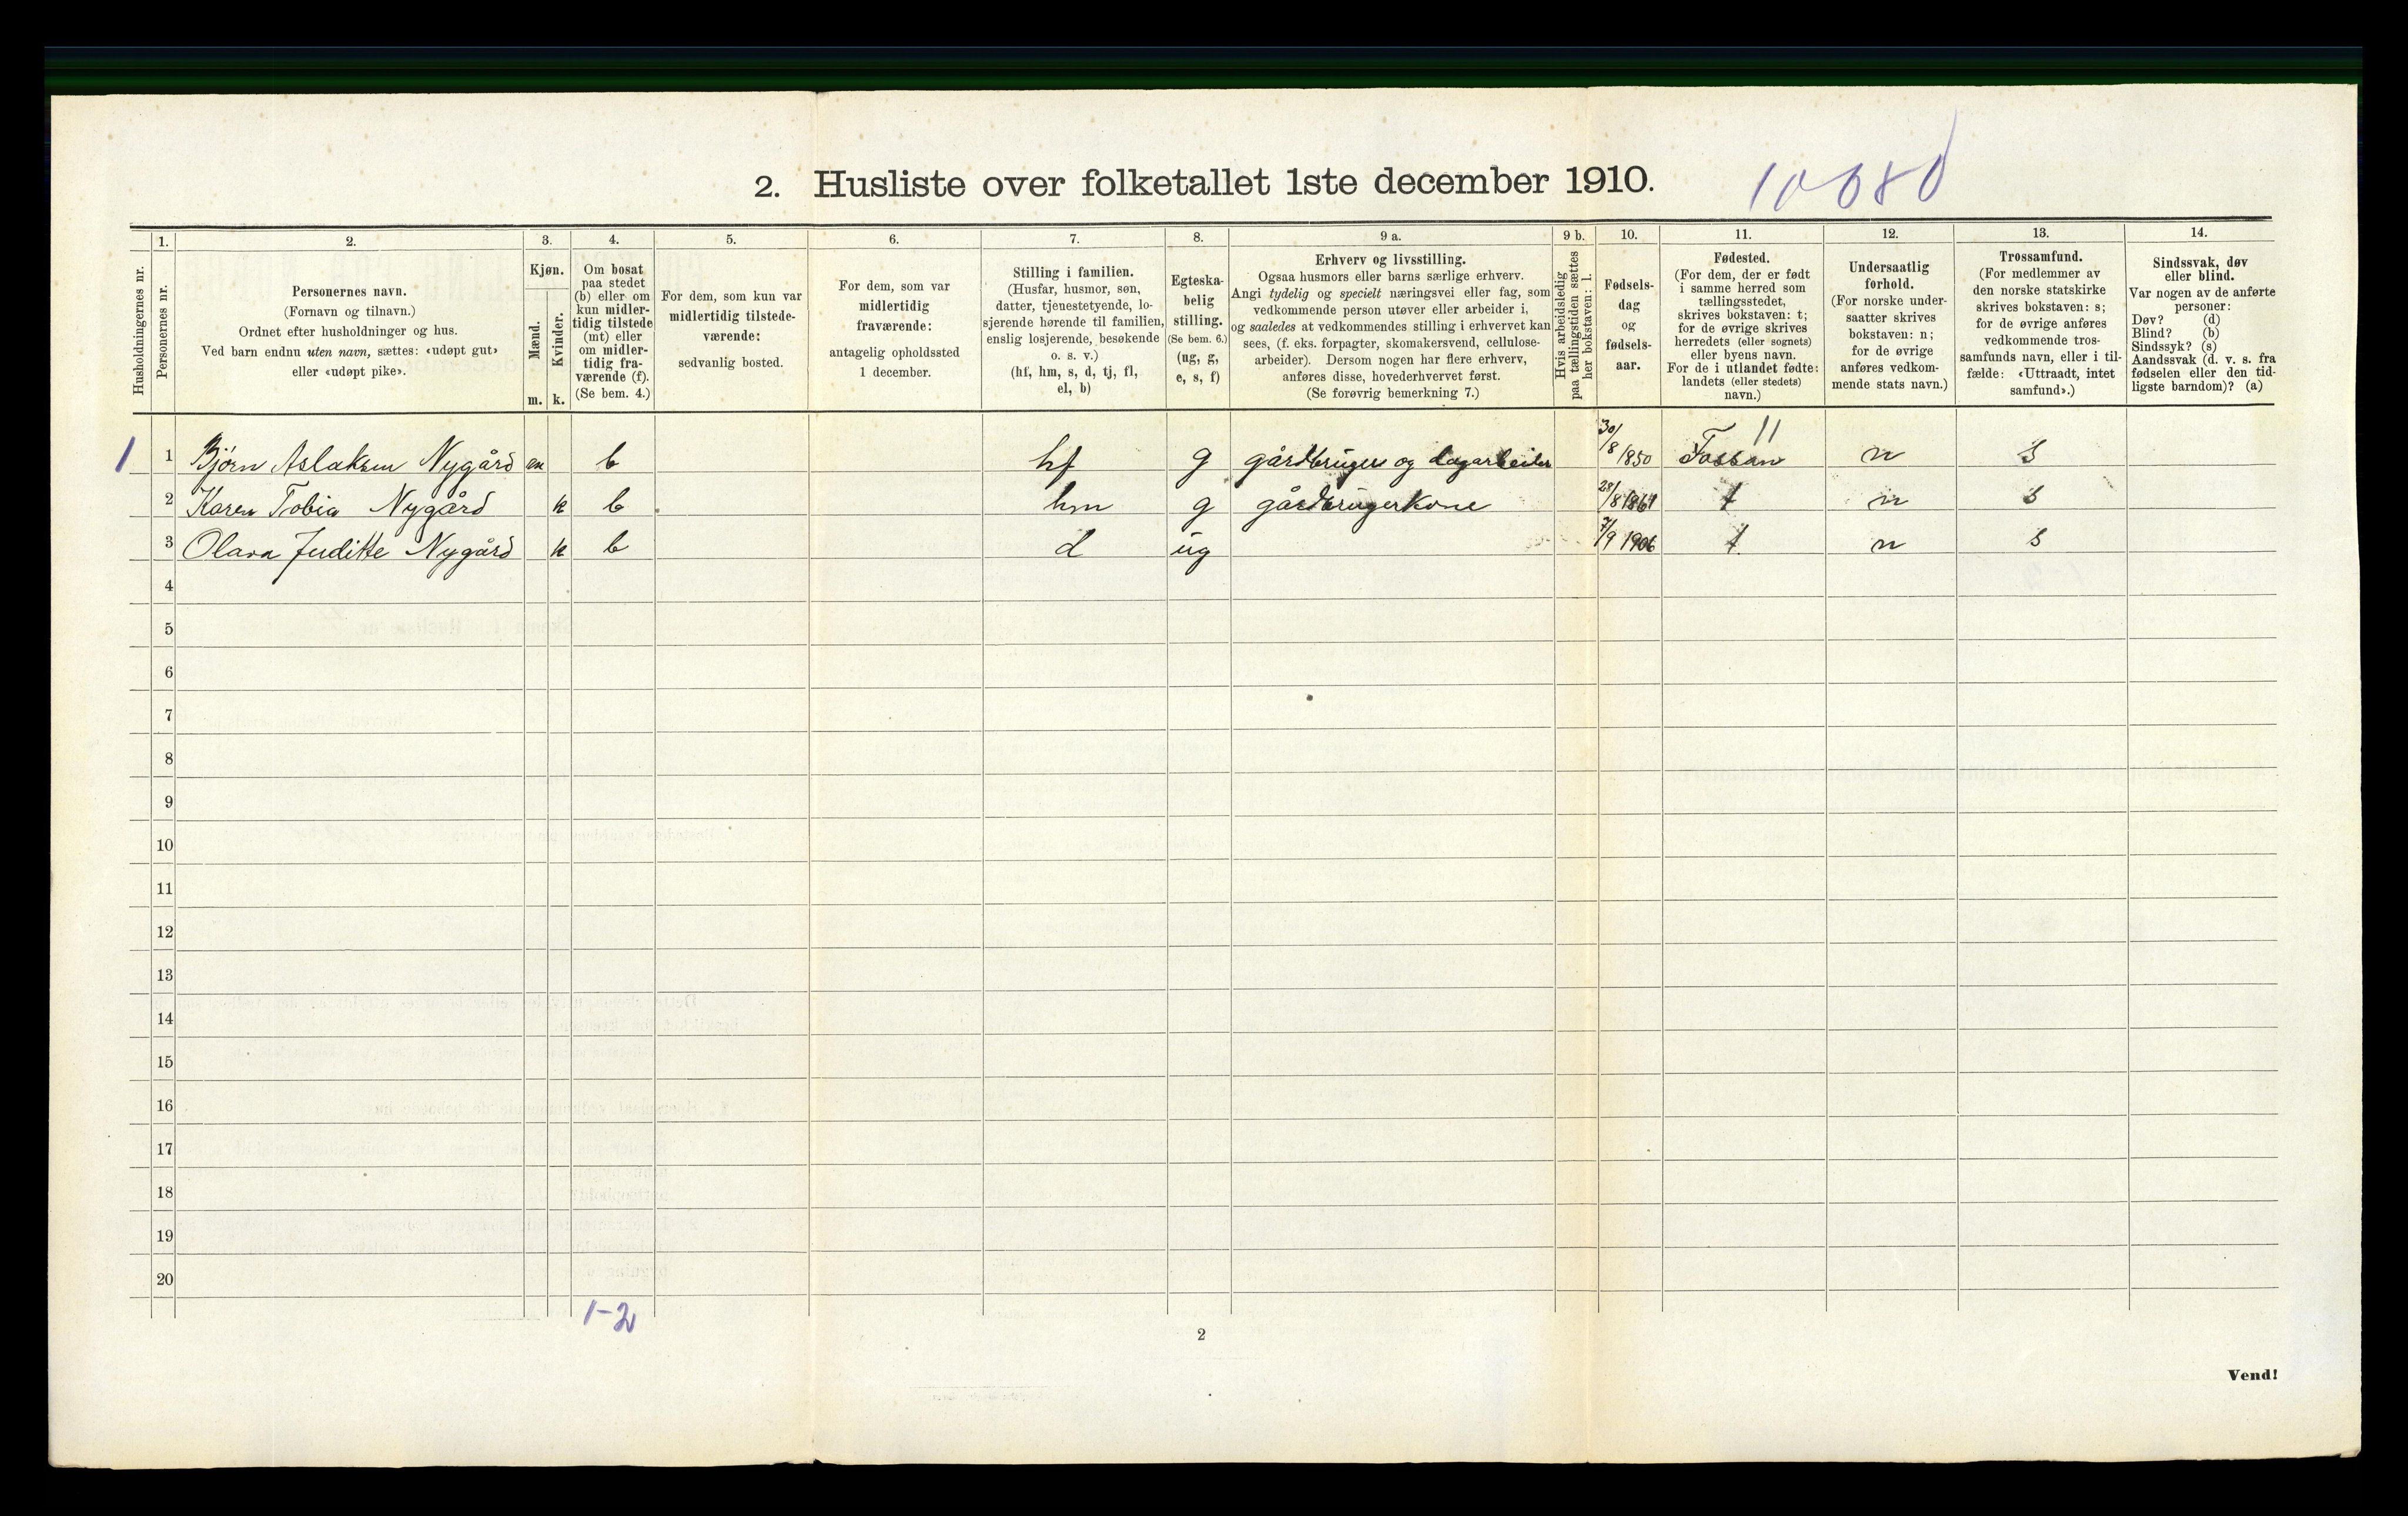 2. Husliste over folketallet 1ste december 1910.
1. 2. 3. 4. 5. 6. 7. 8. 9 a. 9 b. 10. 11. 12. 13. 14.
Husholdningernes nr.
Personernes nr.
Personernes navn.
(Fornavn og tilnavn.)
Ordnet efter husholdninger og hus.
Ved barn endnu uten navn, sættes: «udøpt gut»
eller «udøpt pike».
Kjøn.
Mænd.
Kvinder.
m. k.
Om bosat
paa stedet
(b) eller om
kun midler-
tidig tilstede
(mt) eller
om midler-
tidig fra-
værende (f).
(Se bem. 4.)
For dem, som kun var
midlertidig tilstede-
værende:
sedvanlig bosted.
For dem, som var
midlertidig
fraværende:
antagelig opholdssted
1 december.
Stilling i familien.
(Husfar, husmor, søn,
datter, tjenestetyende, lo-
sjerende hørende til familien,
enslig losjerende, besøkende
o. s. v.)
(hf, hm, s, d, tj, fl,
el, b)
Egteska-
belig
stilling.
(Se bem. 6.)
(ug, g,
e, s, f)
Erhverv og livsstilling.
Ogsaa husmors eller barns særlige erhverv.
Angi tydelig og specielt næringsvei eller fag, som
vedkommende person utøver eller arbeider i,
og saaledes at vedkommendes stilling i erhvervet kan
sees, (f. eks. forpagter, skomakersvend, cellulose-
arbeider). Dersom nogen har flere erhverv,
anføres disse, hovederhvervet først.
(Se forøvrig bemerkning 7.)
Hvis arbeidsledig
paa tællingstiden sættes
her bokstaven: l.
Fødsels-
dag
og
fødsels-
aar.
Fødested.
(For dem, der er født
i samme herred som
tællingsstedet,
skrives bokstaven: t;
for de øvrige skrives
herredets (eller sognets)
eller byens navn.
For de i utlandet fødte:
landets (eller stedets)
navn.)
Undersaatlig
forhold.
(For norske under-
saatter skrives
bokstaven: n;
for de øvrige
anføres vedkom-
mende stats navn.)
Trossamfund.
(For medlemmer av
den norske statskirke
skrives bokstaven: s;
for de øvrige anføres
vedkommende tros-
samfunds navn, eller i til-
fælde: «Uttraadt, intet
samfund».)
Sindssvak, døv
eller blind.
Var nogen av de anførte
personer:
Døv? (d)
Blind? (b)
Sindssyk? (s)
Aandssvak (d. v. s. fra
fødselen eller den tid-
ligste barndom)? (a)
11
1 1 Bjørn Aslaksen Nygård m b hf g gårdbruger og dagarbeider 30/8 1850 Fossan n s
2 Karen Tobia Nygård k b hm g gårdbrugerkone 28/8 t n s
3 Olava Juditte Nygård k b d ug 7/9 1906 t n s
4
5
6
7
8
9
10
11
12
13
14
15
16
17
18
19
20
1-2
2
Vend!